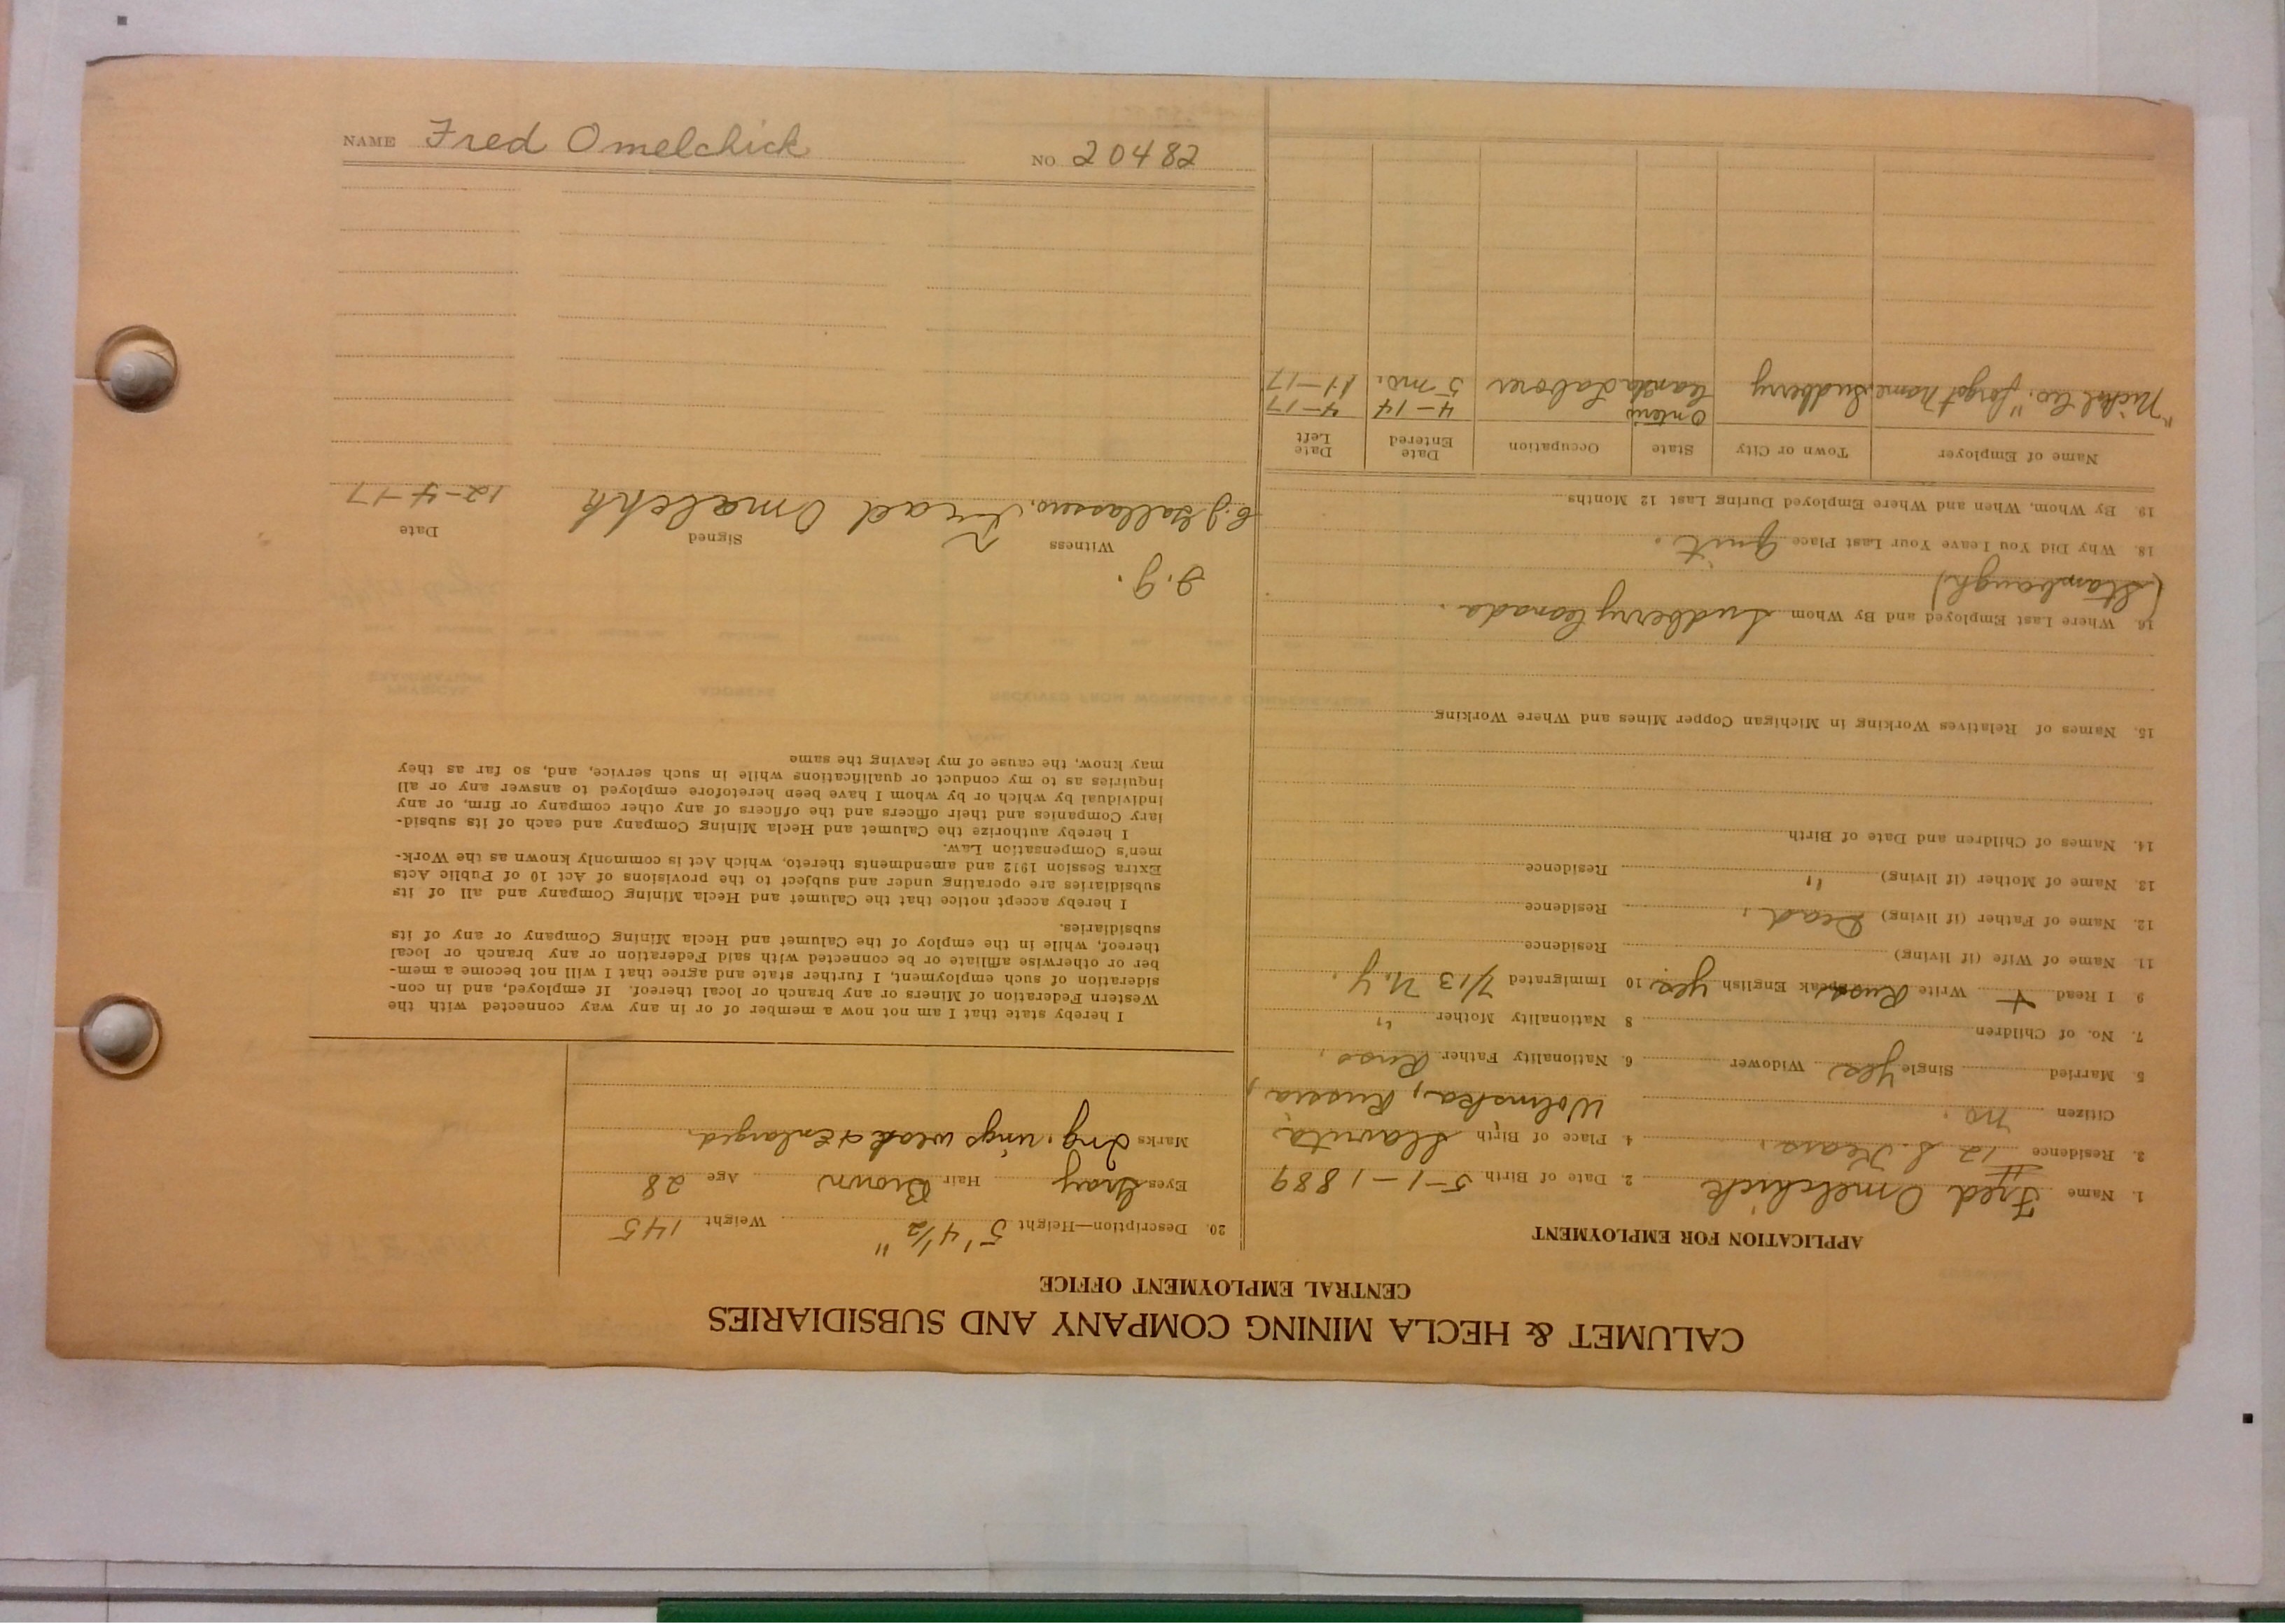 CALUMET & HECLA MINING COMPANY AND SUBSIDIARIES
CENTRAL EMPLOYMENT OFFICE
APPLICATION FOR EMPLOYMENT
1. Name Fred Omelchick 2. Date of Birth 5-1-1889
3. Residence # 12 S. Kears. 4. Place of Birth Slavuta
Citizen no. Wolmska, Russia,
5 Married Single Yes Widower 6. Nationality Father Russ.
7. No. of Children 8 Nationality Mother "
9 I Read + Write Russ Speak English yes. 10 Immigrated 7/13 N.Y.
11. Name of Wife (if living) Residence
12. Name of Father (if living) Dead. Residence
13. Name of Mother (if living) " Residence
14. Names of Children and Date of Birth
15. Names of Relatives Working in Michigan Copper Mines and Where Working
16. Where Last Employed and By Whom Sudberry Canada.
(Stambaugh)
18. Why Did You Leave Your Last Place quit.
19. By Whom, When and Where Employed During Last 12 Months
Name of Employer Town or City State Occupation Date Entered Date Left
Ontario 4-14 4-17
"Nickel Co." forgot name. Sudberry Canada Laborer 5 mo. 11-17
20. Description—Height 5' 4 1/2" Weight 145
Eyes Gray Hair Brown Age 28
Marks Ing. rings weak & Enlarged.
I hereby state that I am not now a member of or in any way connected with the
Western Federation of Miners or any branch or local thereof. If employed, and in con-
sideration of such employment, I further state and agree that I will not become a mem-
ber or otherwise affiliate or be connected with said Federation or any branch or local
thereof, while in the employ of the Calumet and Hecla Mining Company or any of its
subsidiaries.
I hereby accept notice that the Calumet and Hecla Mining Company and all of its
subsidiaries are operating under and subject to the provisions of Act 10 of Public Acts
Extra Session 1912 and amendments thereto, which Act is commonly known as the Work-
men's Compensation Law.
I hereby authorize the Calumet and Hecla Mining Company and each of its subsid-
iary Companies and their officers and the officers of any other company or firm, or any
individual by which or by whom I have been heretofore employed to answer any or all
inquiries as to my conduct or qualifications while in such service, and, so far as they
may know, the cause of my leaving the same
Witness Signed Date
Fred Omelchk 12-4-17
NAME Fred Omelchick NO 20482